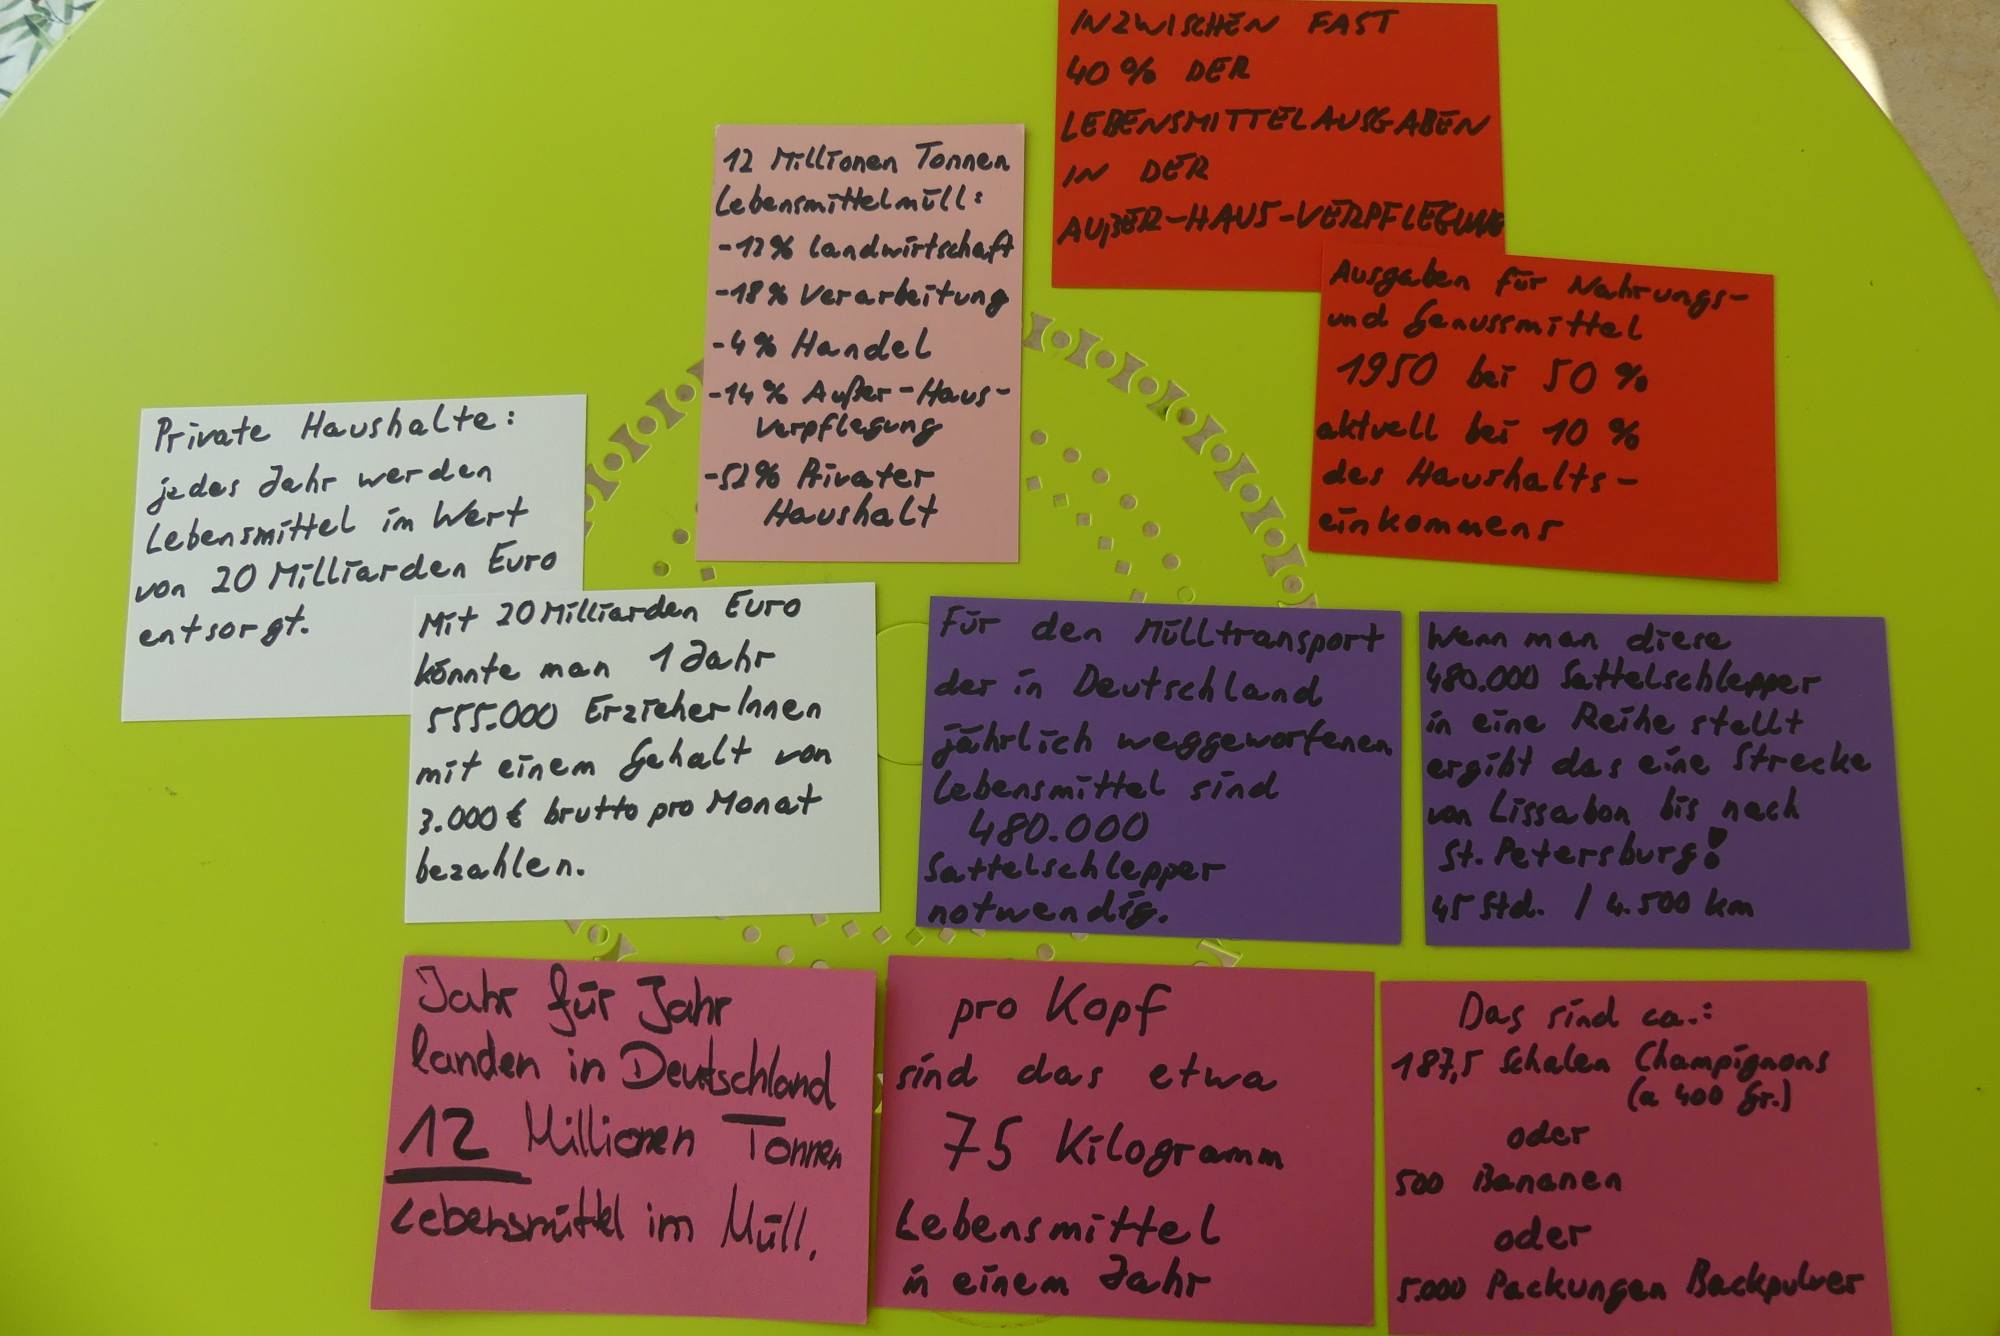 INZWISCHEN FAST
40 % DER
LEBENSMITTELAUSGABEN
IN DER
AUßER-HAUS-VERPFLEGUNG
12 Millionen Tonnen
Lebensmittelmüll:
-12% Landwirtschaft
-18% Verarbeitung
-4% Handel
-14% Außer-Haus-
Verpflegung
-52% Privater
Haushalt
Ausgaben für Nahrungs-
und Genussmittel
1950 bei 50 %
aktuell bei 10 %
des Haushalts-
einkommens
Private Haushalte:
jedes Jahr werden
Lebensmittel im Wert
von 20 Milliarden Euro
entsorgt.
Mit 20 Milliarden Euro
könnte man 1 Jahr
555.000 ErzieherInnen
mit einem Gehalt von
3.000 € brutto pro Monat
bezahlen.
Für den Mülltransport
der in Deutschland
jährlich weggeworfenen
Lebensmittel sind
480.000
Sattelschlepper
notwendig.
Wenn man diese
480.000 Sattelschlepper
in eine Reihe stellt
ergibt das eine Strecke
von Lissabon bis nach
St. Petersburg!
45 Std. / 4.500 km
Jahr für Jahr
landen in Deutschland
12 Millionen Tonnen
Lebensmittel im Müll.
pro Kopf
sind das etwa
75 Kilogramm
Lebensmittel
in einem Jahr
Das sind ca.:
187,5 Schalen Champignons
(a 400 Gr.)
oder
500 Bananen
oder
5.000 Packungen Backpulver